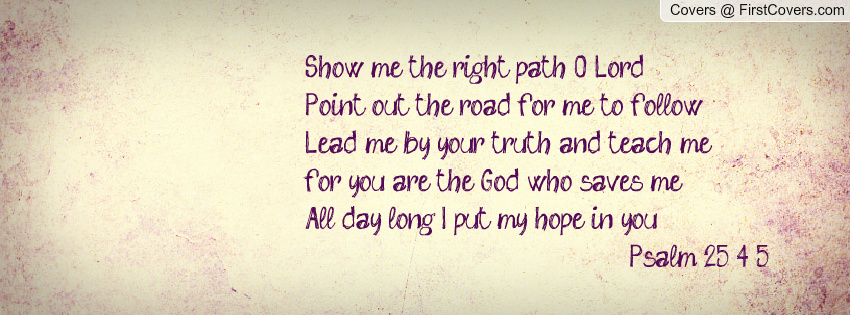 Covers @ FirstCovers.com
Show me the right path O Lord
Point out the road for me to follow
Lead me by your truth and teach me
for you are the God who saves me
All day long I put my hope in you
Psalm 25 4 5